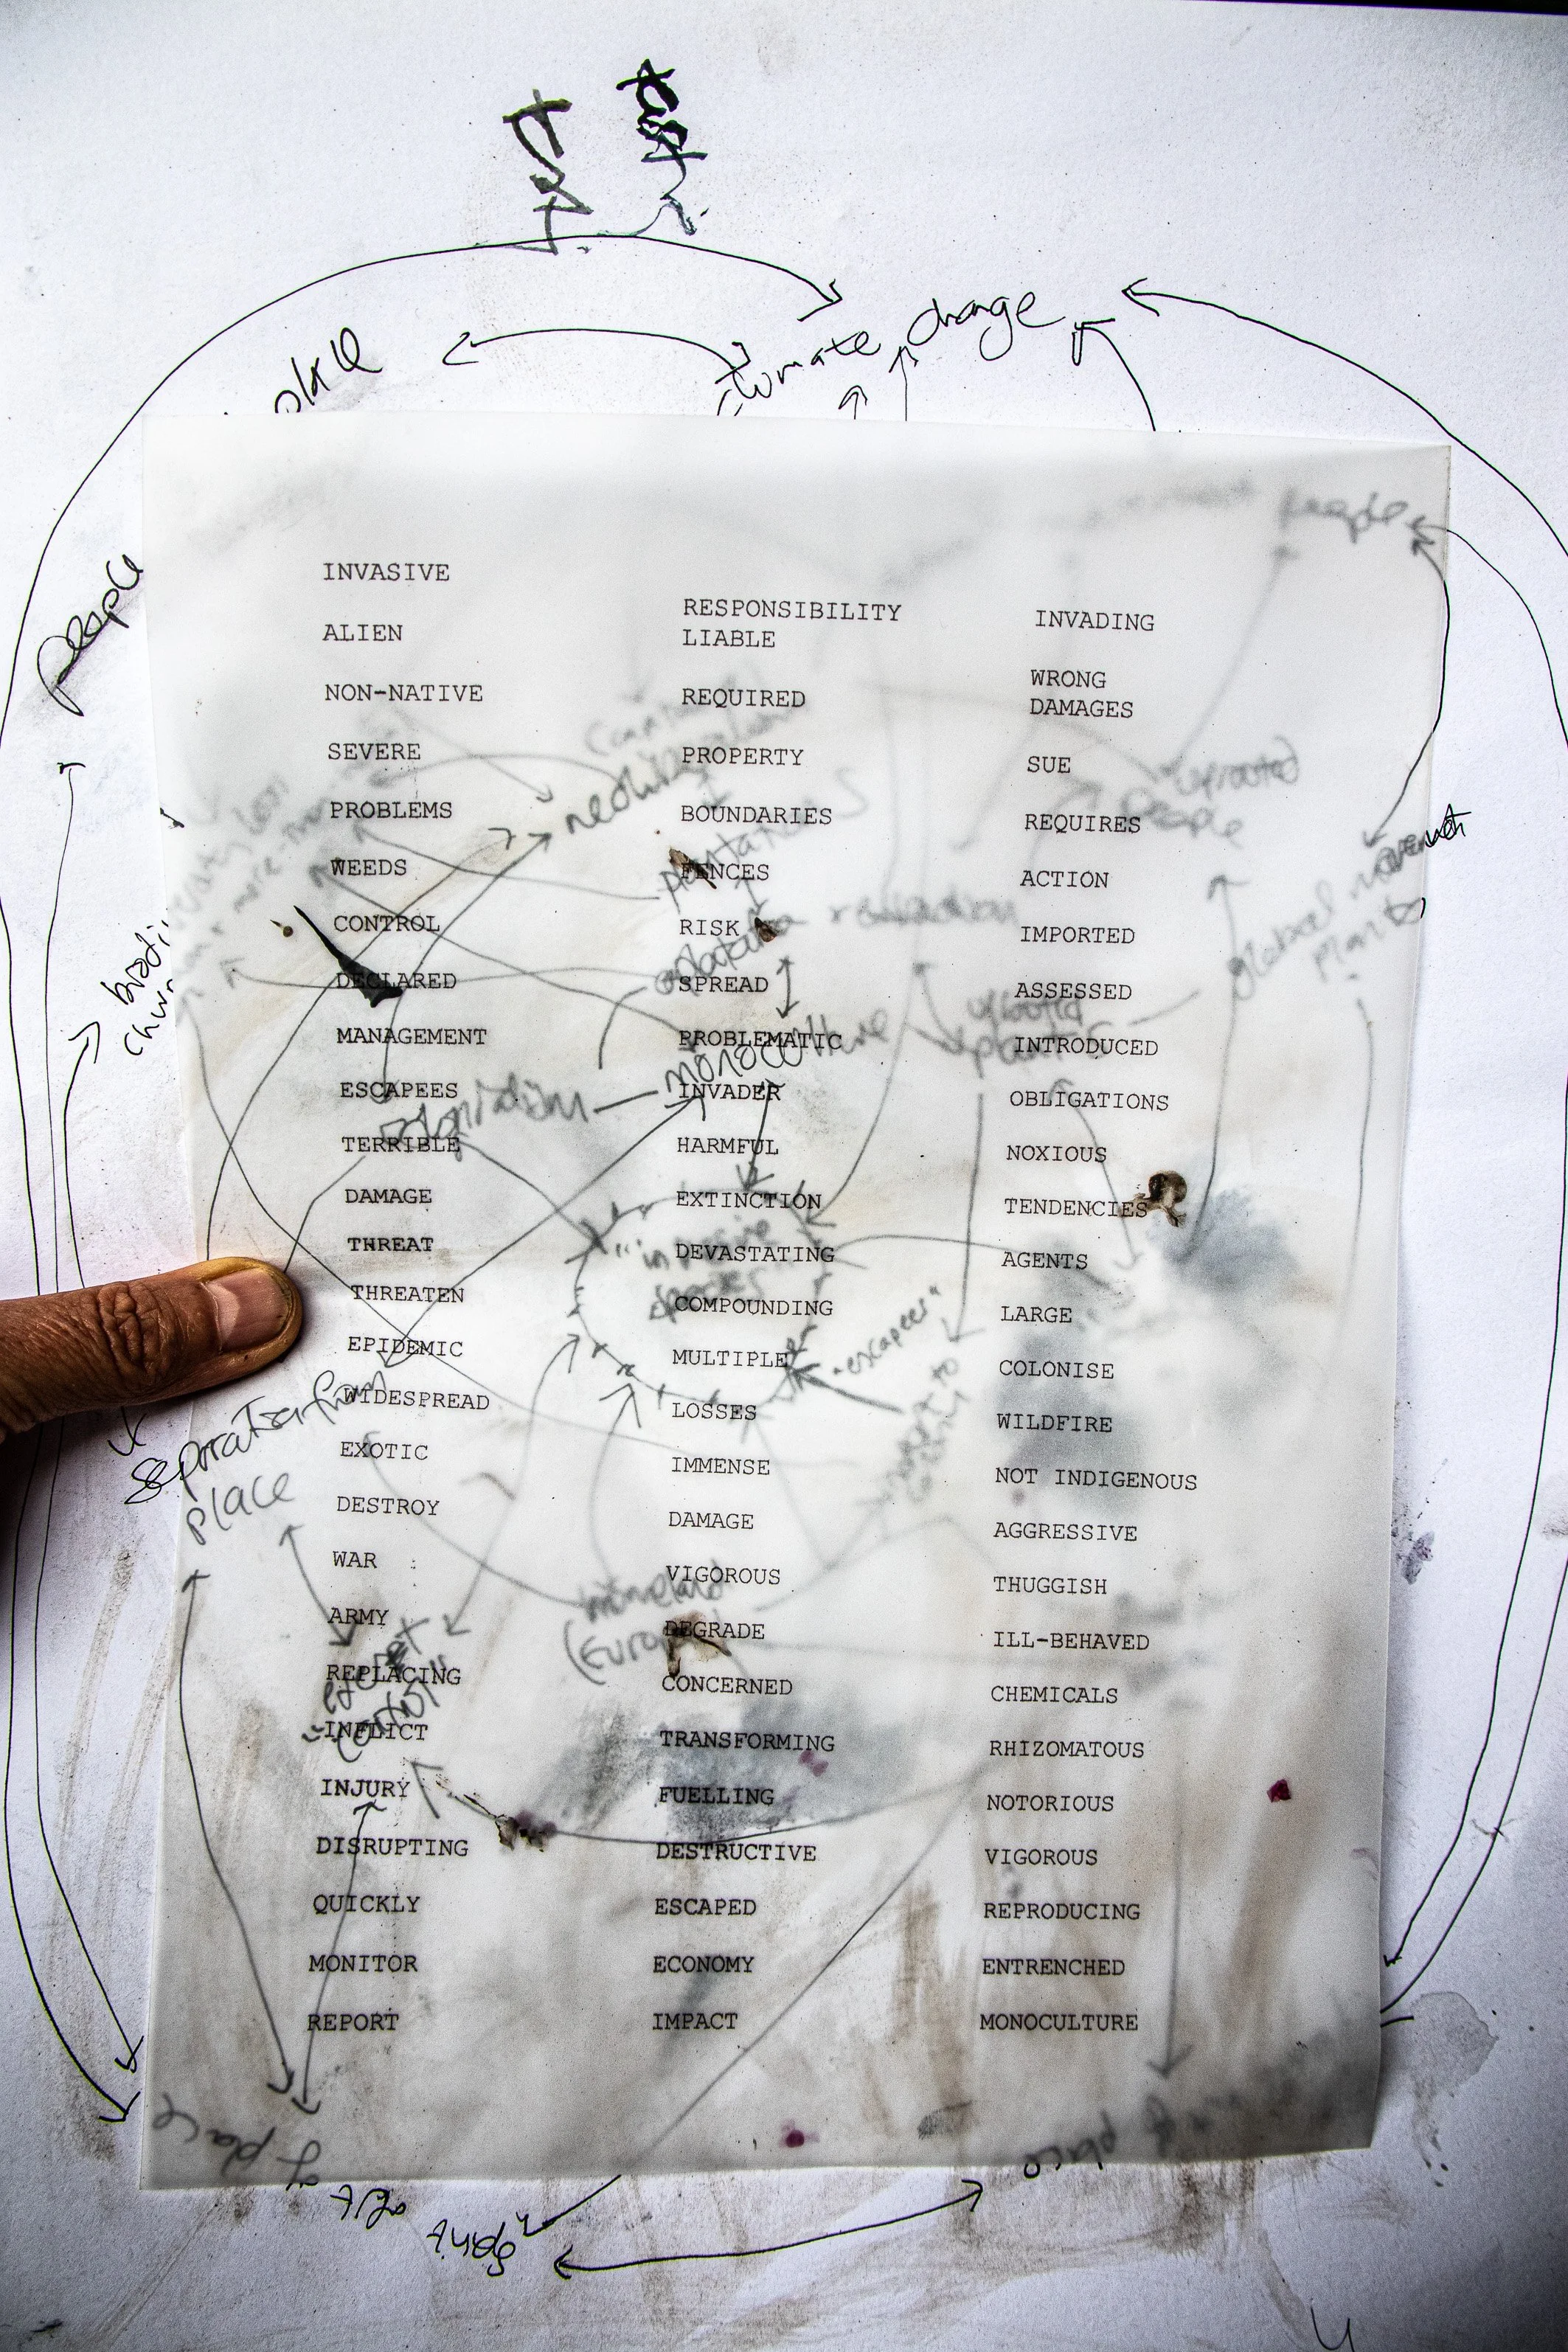 climate change
people
people
INVASIVE
ALIEN
NON-NATIVE
SEVERE
PROBLEMS
WEEDS
CONTROL
DECLARED
MANAGEMENT
ESCAPEES
TERRIBLE
DAMAGE
THREAT
THREATEN
EPIDEMIC
WIDESPREAD
EXOTIC
DESTROY
WAR
ARMY
REPLACING
INFLICT
INJURY
DISRUPTING
QUICKLY
MONITOR
REPORT
RESPONSIBILITY
LIABLE
REQUIRED
PROPERTY
BOUNDARIES
FENCES
RISK
SPREAD
PROBLEMATIC
INVADER
HARMFUL
EXTINCTION
DEVASTATING
COMPOUNDING
MULTIPLE
LOSSES
IMMENSE
DAMAGE
VIGOROUS
DEGRADE
CONCERNED
TRANSFORMING
FUELLING
DESTRUCTIVE
ESCAPED
ECONOMY
IMPACT
INVADING
WRONG
DAMAGES
SUE
REQUIRES
ACTION
IMPORTED
ASSESSED
INTRODUCED
OBLIGATIONS
NOXIOUS
TENDENCIES
AGENTS
LARGE
COLONISE
WILDFIRE
NOT INDIGENOUS
AGGRESSIVE
THUGGISH
ILL-BEHAVED
CHEMICALS
RHIZOMATOUS
NOTORIOUS
VIGOROUS
REPRODUCING
ENTRENCHED
MONOCULTURE
plantations
uprooted
people
global movement
plants
monoculture
uprooted
plants
colonialism
"invasive
species"
"escapees"
separation from
place
homeland
(Europe)
control"
of place
of place